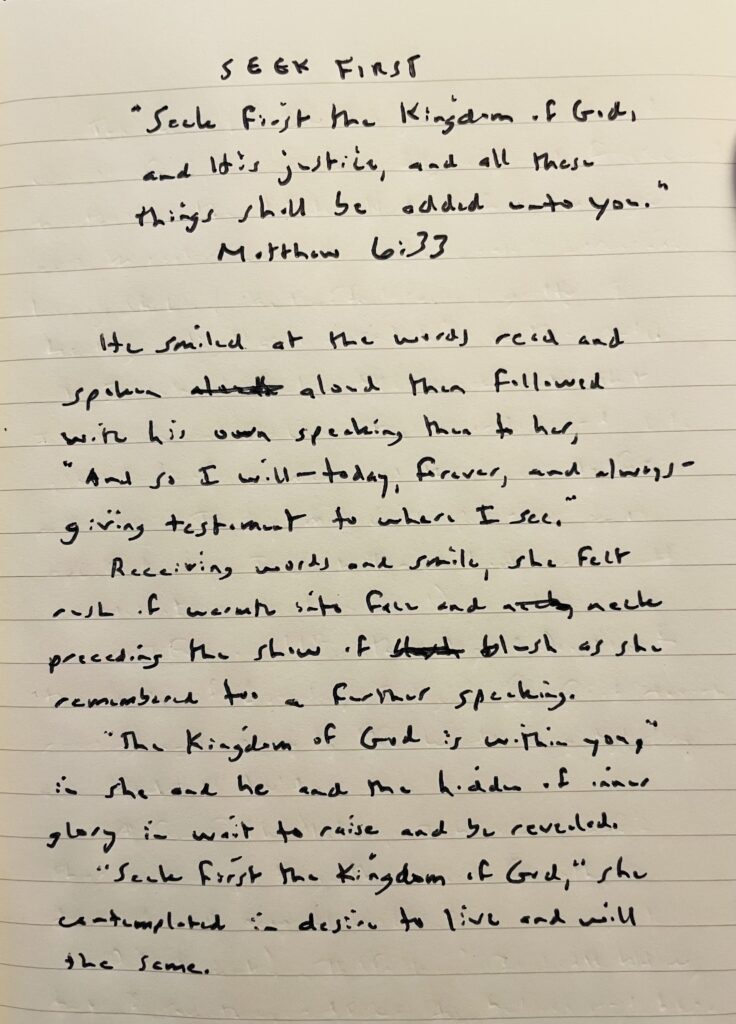 SEEK FIRST
"Seek first the Kingdom of God,
and His justice, and all these
things shall be added unto you."
Matthew 6:33
He smiled at the words read and
spoken aloud then followed
with his own speaking then to her,
"And so I will—today, forever, and always—
giving testament to where I see."
Receiving words and smile, she felt
rush of warmth into face and neck
preceding the show of blush as she
remembered too a further speaking.
"The Kingdom of God is within you,"
in she and he and the hidden of inner
glory in wait to raise and be revealed.
"Seek first the Kingdom of God," she
contemplated in desire to live and will
the same.